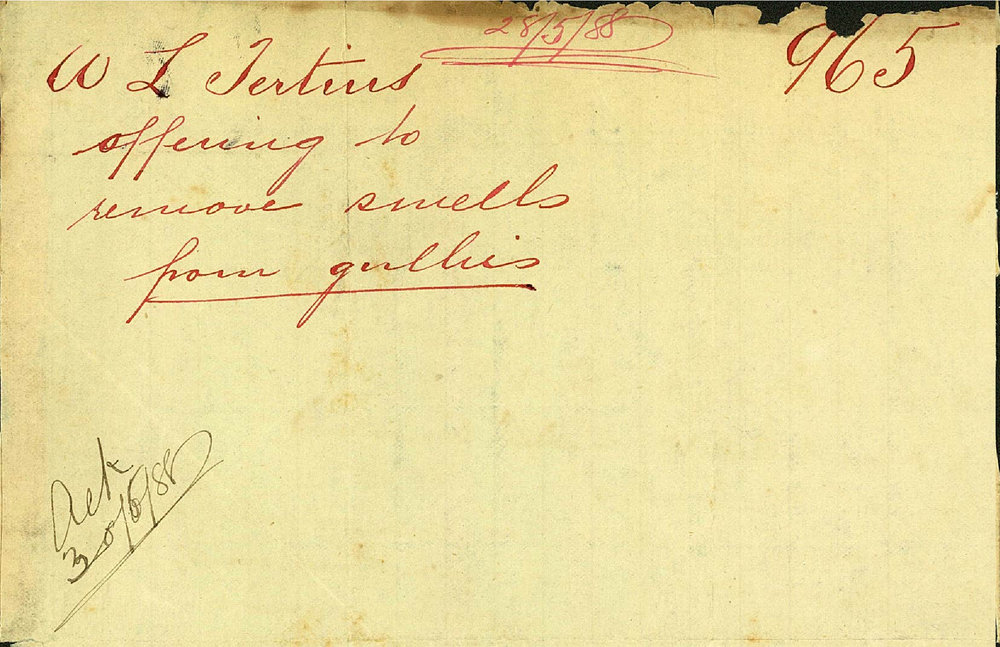 28/5/88
965
W L Tertius
offering to
remove smells
from gullies
Ack
30/6/88